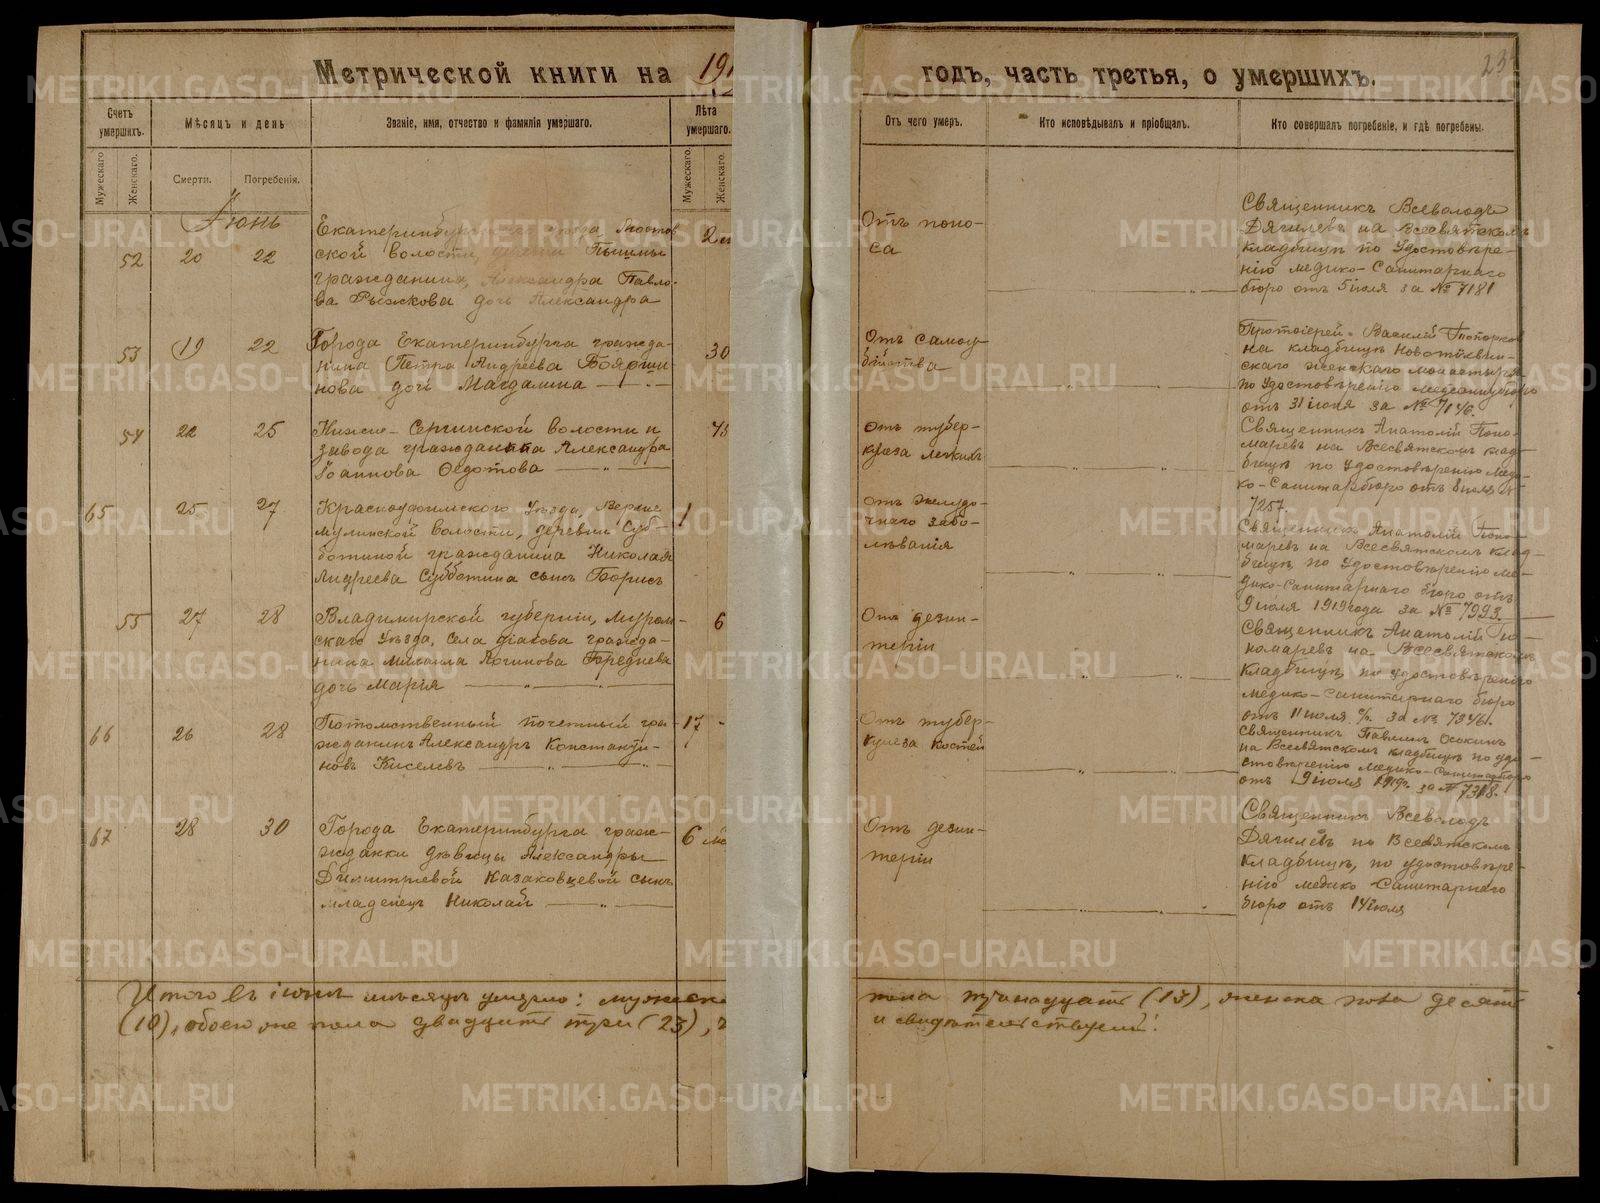 Метрической книги на 191
годъ, часть третья, о умершихъ.
Счетъ умершихъ.
Мѣсяцъ и день
Званіе, имя, отчество и фамилія умершаго.
Лѣта умершаго.
Отъ чего умеръ.
Кто исповѣдывалъ и пріобщалъ.
Кто совершалъ погребеніе, и гдѣ погребены.
Мужескаго
Женскаго.
Смерти.
Погребенія.
Мужескаго.
Женскаго.
Іюнь
52 20 22
Екатеринбургскаго уѣзда,
ской волости, деревни Пышмы
гражданина, Александра Павло-
ва Рыжкова дочь Александра
2
Отъ поно-
са
Священникъ Всеволодъ
Дягилевъ на Всесвятскомъ
кладбищѣ по удостовѣре-
нію медико-Санитарнаго
бюро отъ 5 іюля за № 7181
53 19 22
Города Екатеринбурга гражда-
нина Петра Андреева Бояршинова
нова дочь Магдалина
30
Отъ самоу-
бійства
Протоіерей Василій
на кладбищѣ Новотихвин-
скаго женскаго монастыря
по удостовѣренію
отъ 31 іюня за № 7146.
54 22 25
Нижне-Сергинской волости и
завода гражданка Александра
Іоаннова Ѳедотова
45
Отъ тубер-
кулеза легкихъ
Священникъ Анатолій Поно-
маревъ на Всесвятскомъ клад-
бищѣ по удостовѣренію меди-
ко-Санитарбюро отъ 8 іюля №
7257.
65 25 27
Красноуфимскаго уѣзда,
волости, деревни Суб-
ботиной гражданина Николая
Андреева Субботина сынъ Борисъ
1
Отъ желудо-
чнаго забо-
лѣванія
Священникъ Анатолій Поно-
маревъ на Всесвятскомъ клад-
бищѣ по удостовѣренію ме-
дико-Санитарнаго бюро отъ
9 іюля 1919 года за № 7293.
55 27 28
Владимирской губерніи, Муром-
скаго уѣзда, села гражда-
нина Михаила Логинова
дочь Марія
6
Отъ дезин-
теріи
Священникъ Анатолій По-
номаревъ на Всесвятскомъ
кладбищѣ, по удостовѣренію
медико-санитарнаго бюро
отъ 11 іюля за № 7346.
66 26 28
Потомственный почетный гра-
жданинъ Александръ Константи-
новъ Киселевъ
17
Отъ тубер-
кулеза костей
Священникъ Павлинъ Осокинъ
на Всесвятскомъ кладбищѣ по удо-
стовѣренію Медико-Санитарбюро
отъ 9 іюля 1919г. за № 7318.
67 28 30
Города Екатеринбурга граж-
жданки дѣвицы Александры
Димитріевой Казаковцевой сынъ
младенецъ Николай
6
Отъ дезин-
теріи
Священникъ Всеволодъ
Дягилевъ на Всесвятскомъ
кладбищѣ, по удостовѣре-
нію медико Санитарнаго
бюро отъ 14 іюля
Итого въ іюнѣ мѣсяцѣ умерло: мужеска
пола тринадцать (13), женска пола десять
(10), обоего же пола двадцать три (23),
и свидѣтельствуемъ:
METRIKI.GASO-URAL.RU